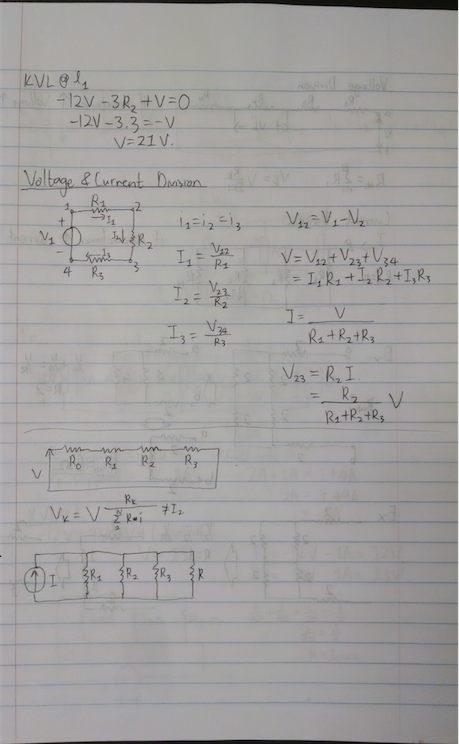 KVL @ l₁
-12V - 3R₂ + V = 0
-12V - 3.3 = -V
V = 21V.
Voltage & Current Division
1 R₁ 2
I₁
+ V₁ -
I₂ R₂
I₃
4 R₃ 3
i₁ = i₂ = i₃
I₁ = V₁₂/R₁
I₂ = V₂₃/R₂
I₃ = V₃₄/R₃
V₁₂ = V₁ - V₂
V = V₁₂ + V₂₃ + V₃₄
= I₁R₁ + I₂R₂ + I₃R₃
I = V/(R₁+R₂+R₃)
V₂₃ = R₂ I
= R₂/(R₁+R₂+R₃) V
V R₀ R₁ R₂ R₃
Vₖ = V Rₖ/Σ
I R₁ R₂ R₃ R